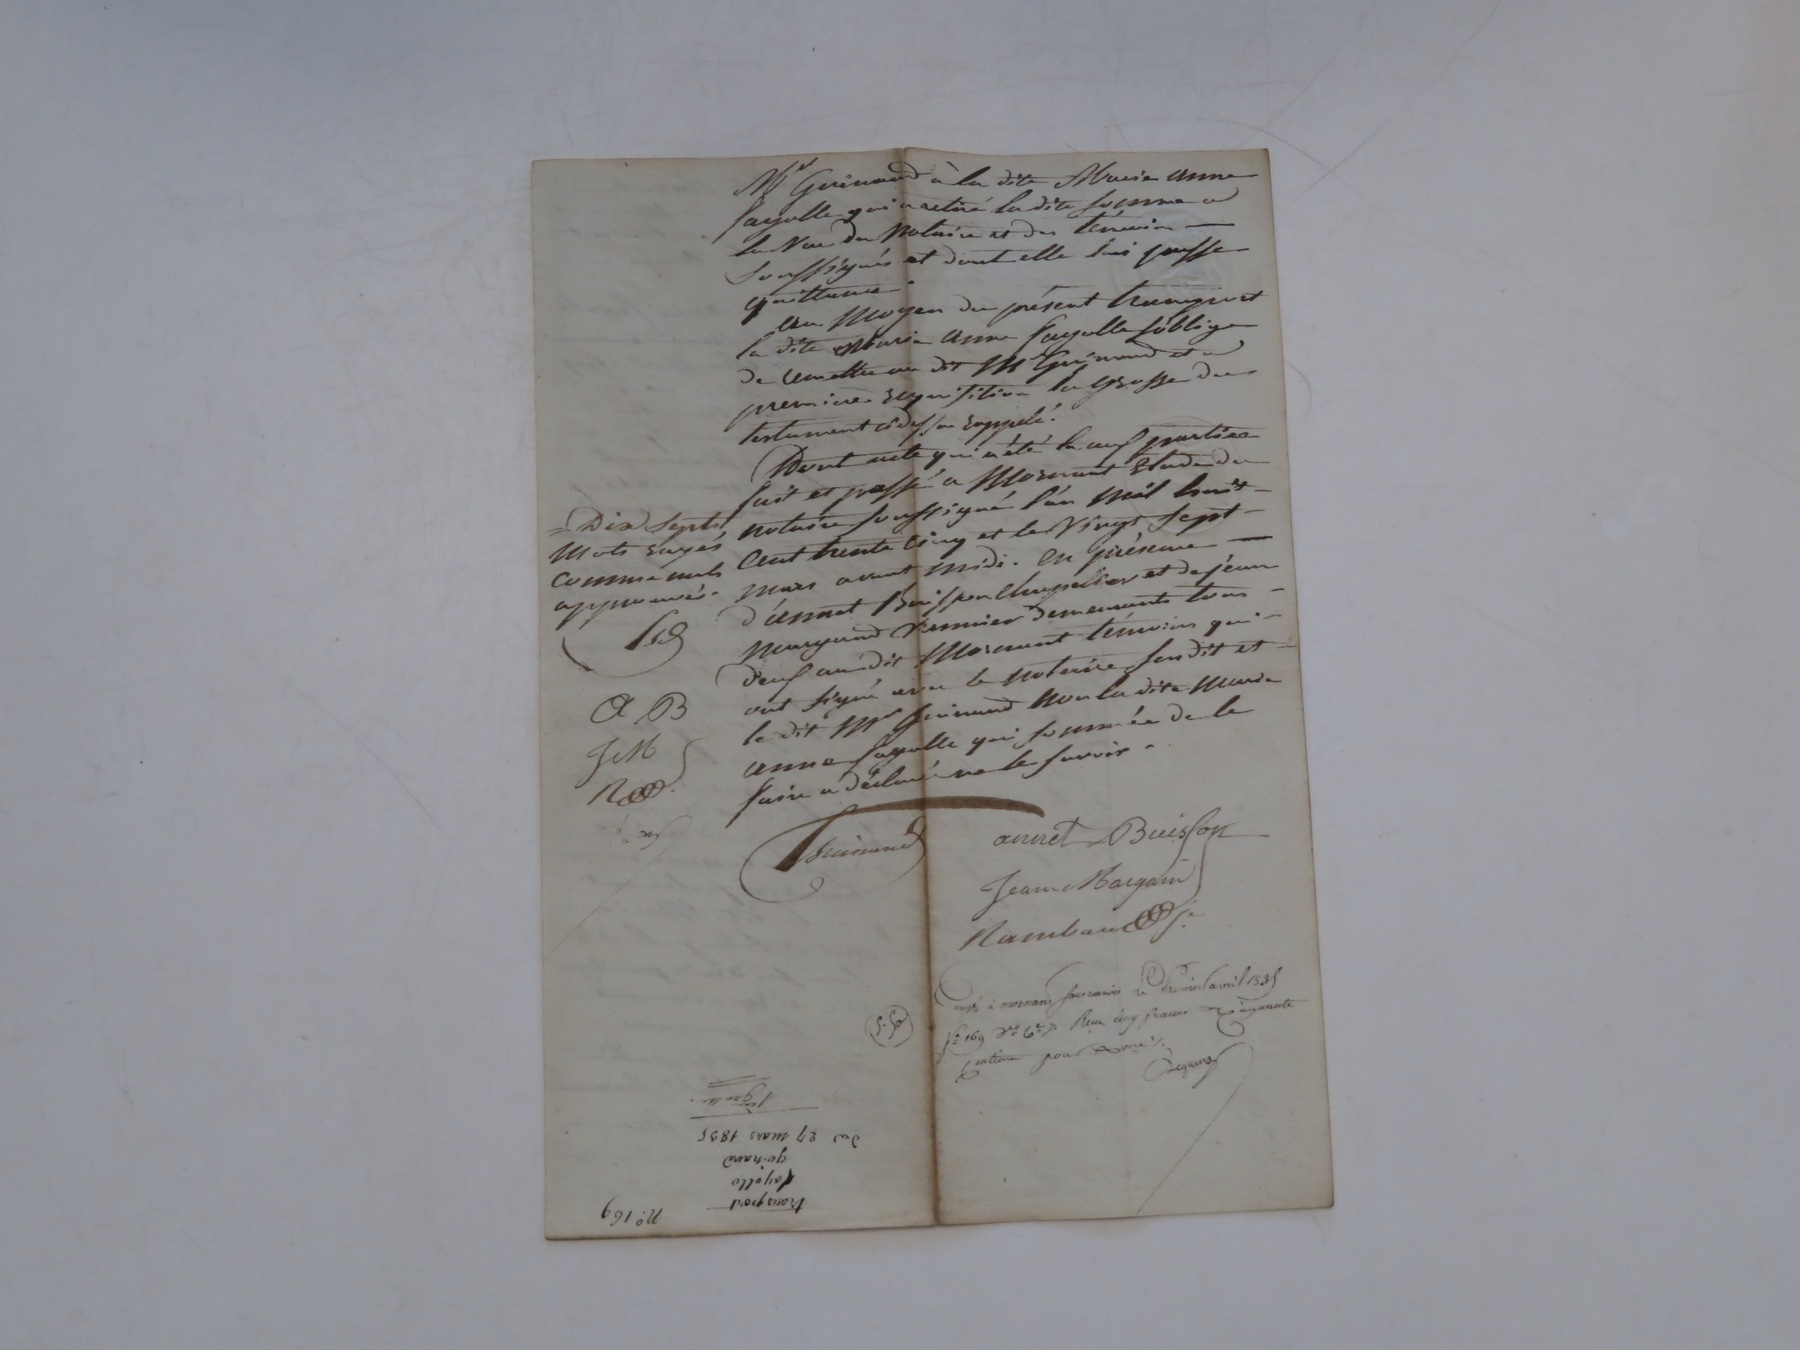 Mr Guinand à la dite Marie anne
fayolle qui a retiré la dite somme a
la Vue du Notaire et des témoins
soussignés et dont elle lui passe
quittance.
Au Moyen du présent transport
la dite Marie Anne fayolle s'oblige
de remettre au dit Mr Guinand et a
premiere requisition la grosse du
testament ci dessus rappelé.
Dont acte qui a été lu aux parties
fait et passé a Mornant Etude du
notaire soussigné l'an Mil huit
Cent trente cinq et le Vingt sept
mars avant midi. En présence
d'annet Buisson Chapellier et de jean
Margand demeurants tous
deux au dit Mornant témoins qui
ont signé avec le notaire susdit et
le dit Mr Guinand Non la dite Marie
anne fayolle qui sommée de le
faire a déclaré ne le savoir.
= Dix Septs
Mots rayés
comme nuls
approuvés.
A B
J M
R
Guinand
annet Buisson
Jean Margain
Rambaud
à mornant le premier avril 1835
fo 169 Vo Reçu cinq francs Cinquante
centimes pour
5.50
No 169
transport
fayolle
guinand
du 27 mars 1835